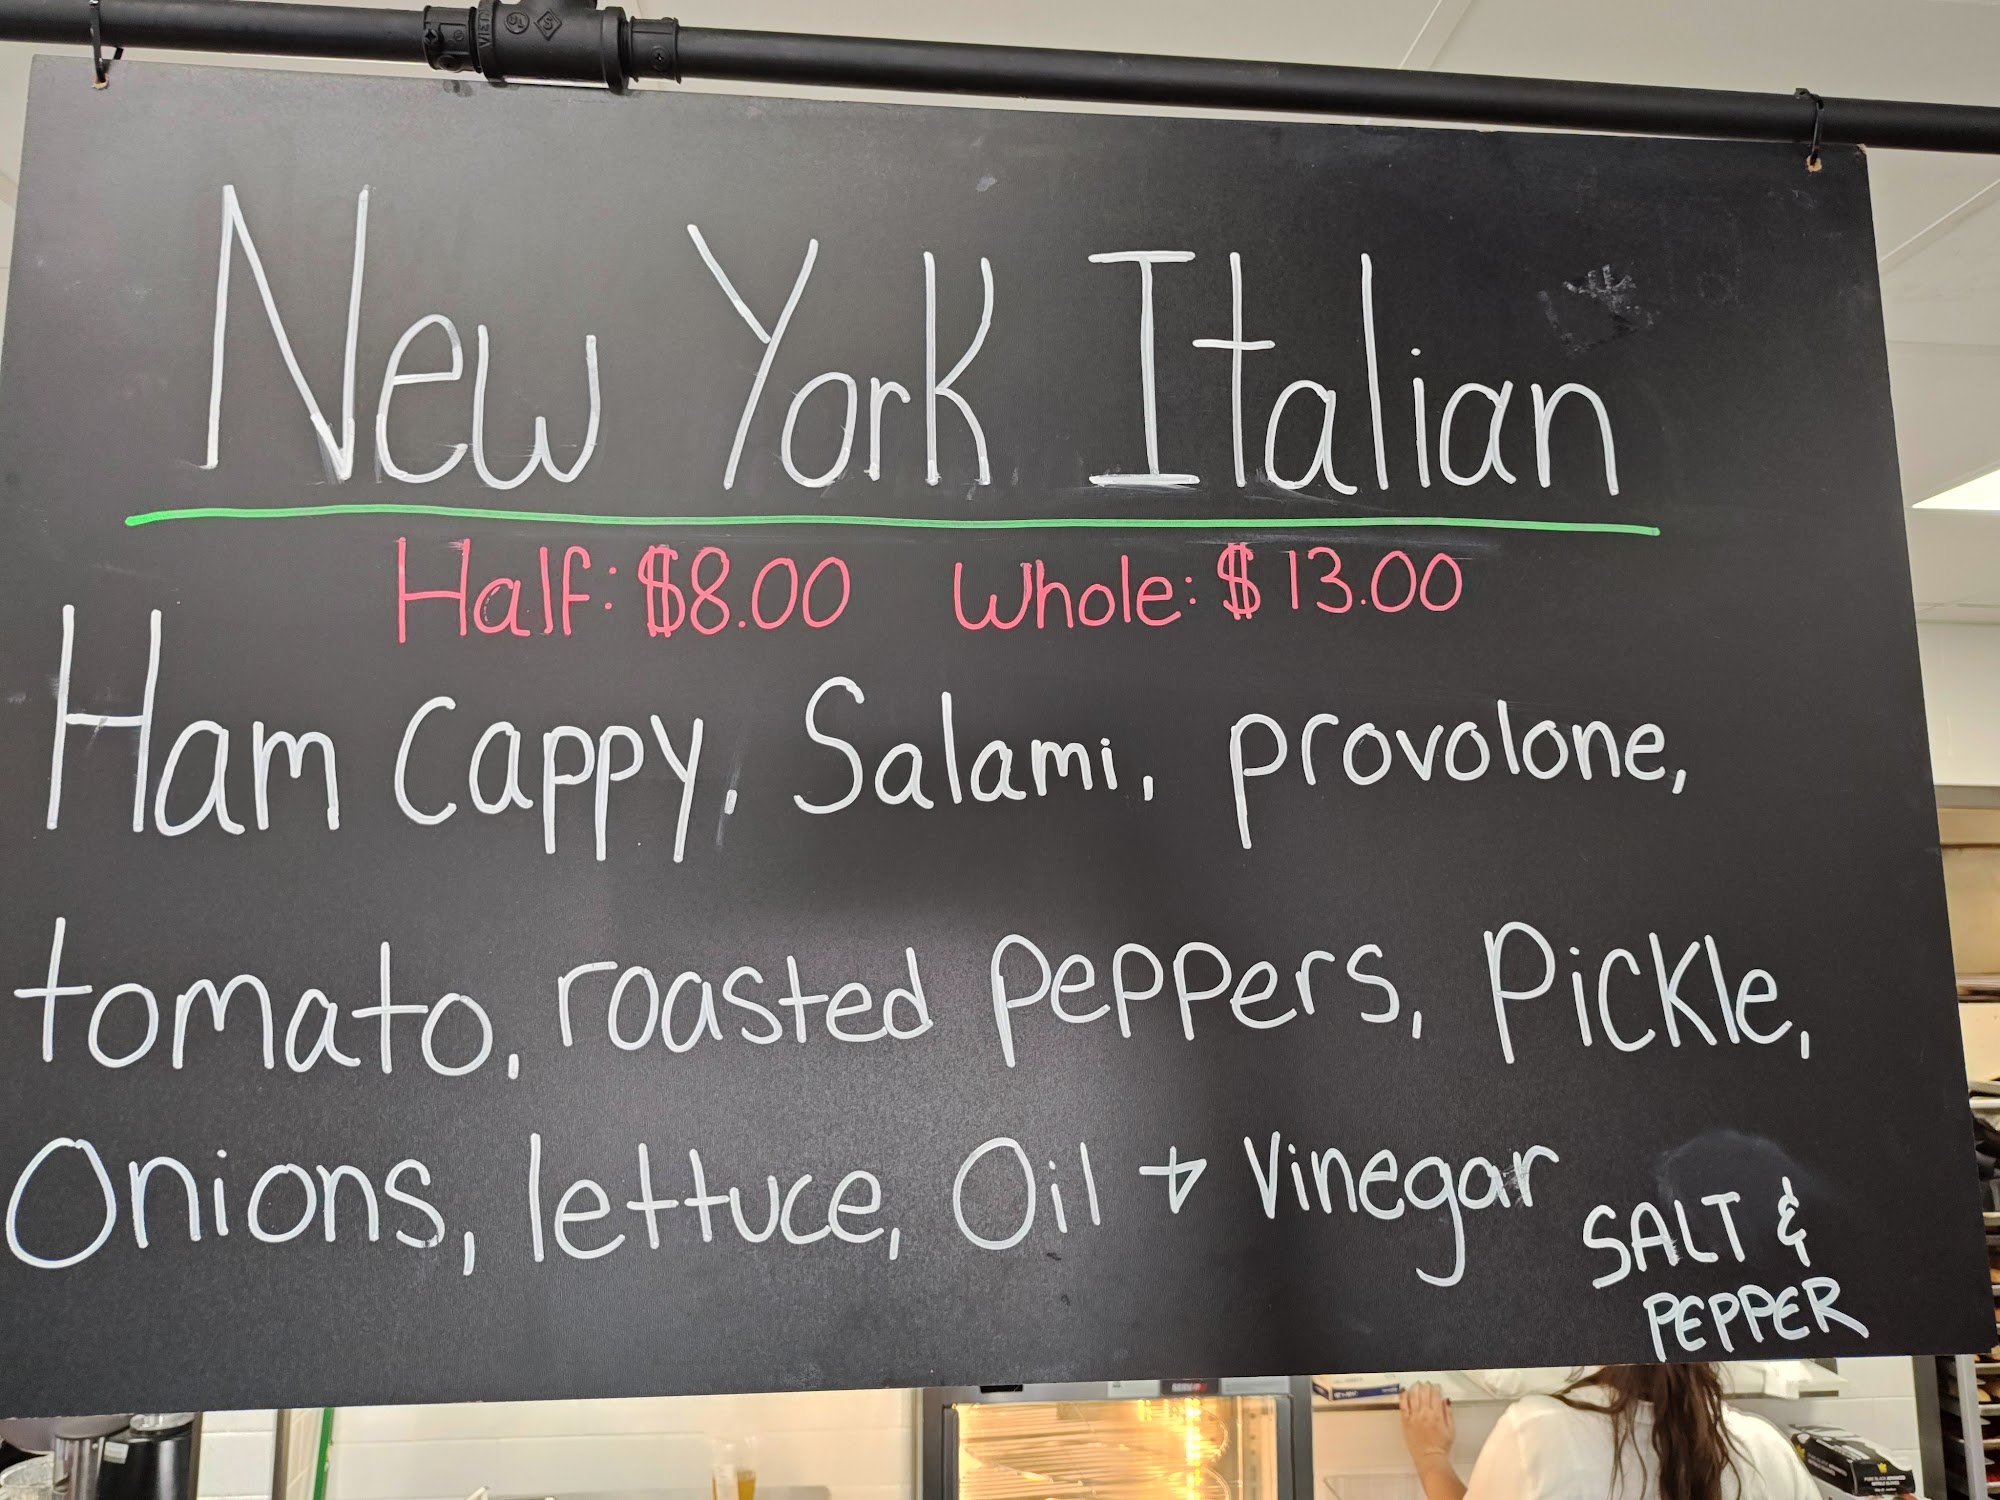 New York Italian
Half: $8.00 Whole: $13.00
Ham Cappy, Salami, provolone,
tomato, roasted peppers, Pickle,
Onions, lettuce, Oil + Vinegar
SALT &
PEPPER